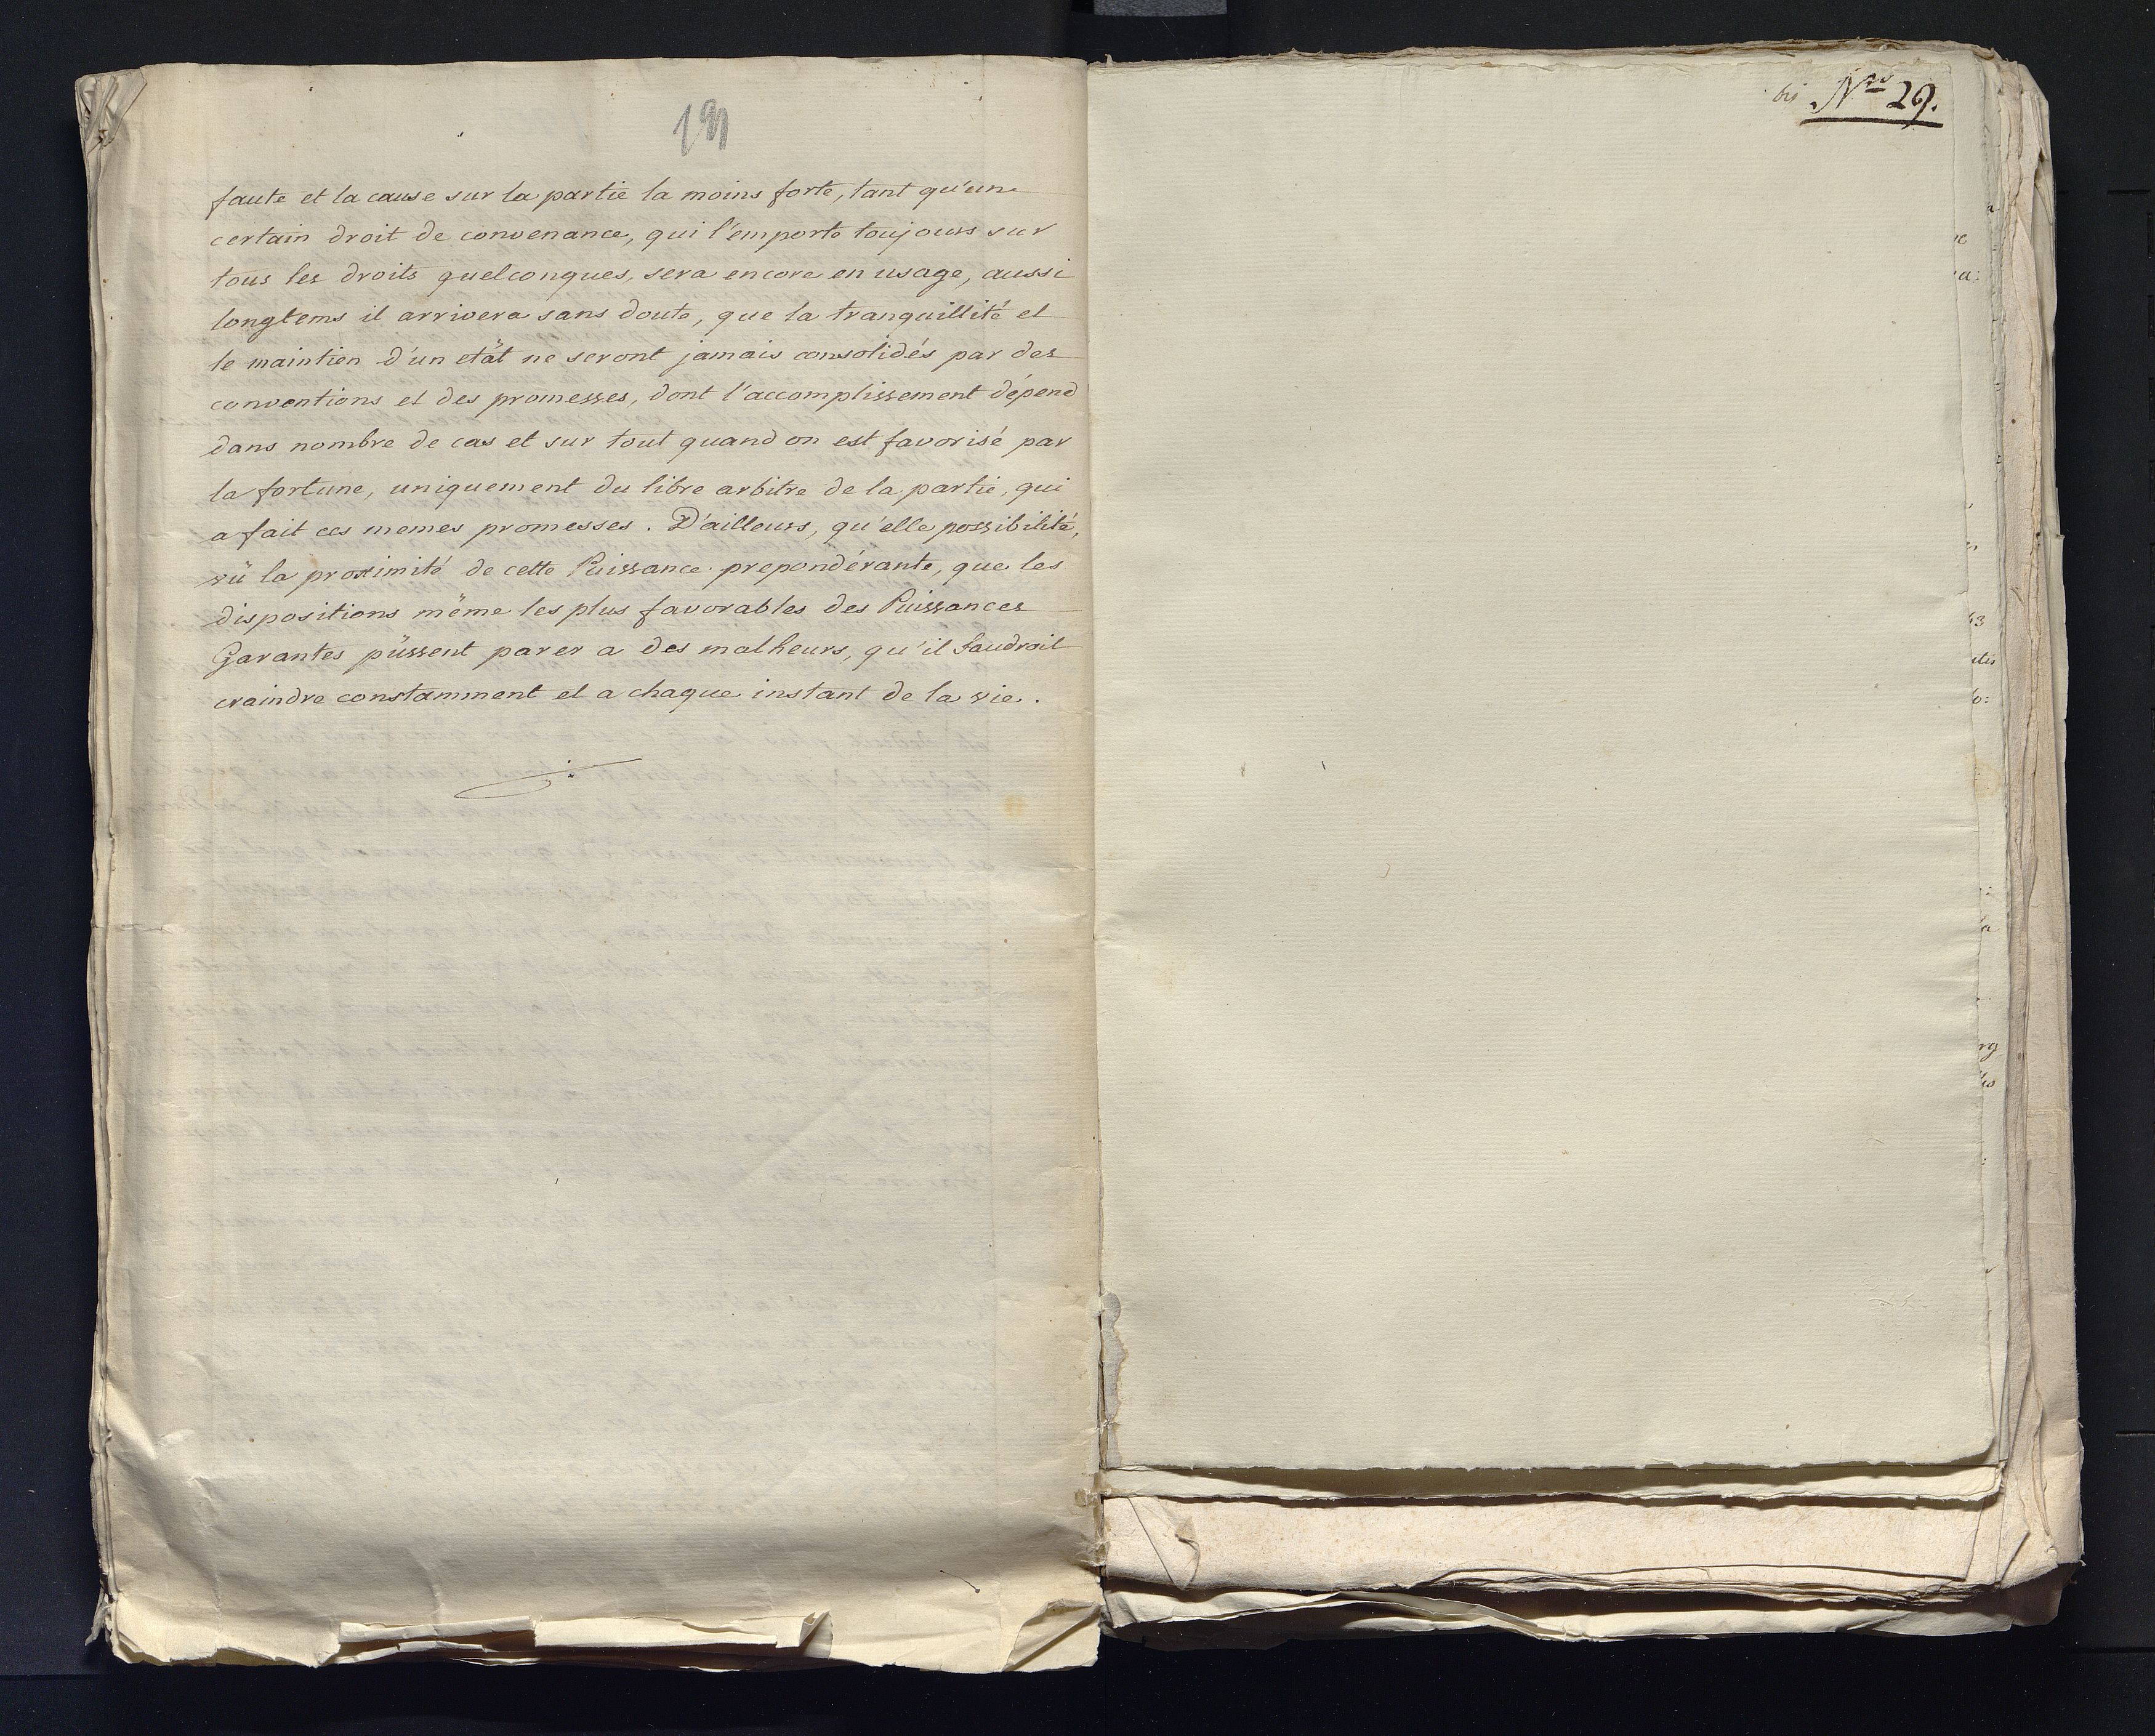 faute et la cause sur la partie la moins forte, tant qu'un
certain droit de convenance, qui l'emporte toujours sur
tous les droits quelconques, sera encore en usage, aussi
longtems il arrivera sans doute, que la tranquillité et
le maintien d'un etät ne seront jamais consolidés par des
conventions et des promesses, dont l'accomplissement dépend
dans nombre de cas et sur tout quand on est favorisé par
la fortune, uniquement du libre arbitre de la partie, qui
a fait ces memes promesses. D'ailleurs, qu'elle possibilité,
vü la proximité de cette Puissance prepondérante, que les
dispositions möme les plus favorables des Puissances
Garantes püssent parer a des malheurs, qu'il faudroit
craindre constamment et a chaque instant de la vie.
bis Nro 29.